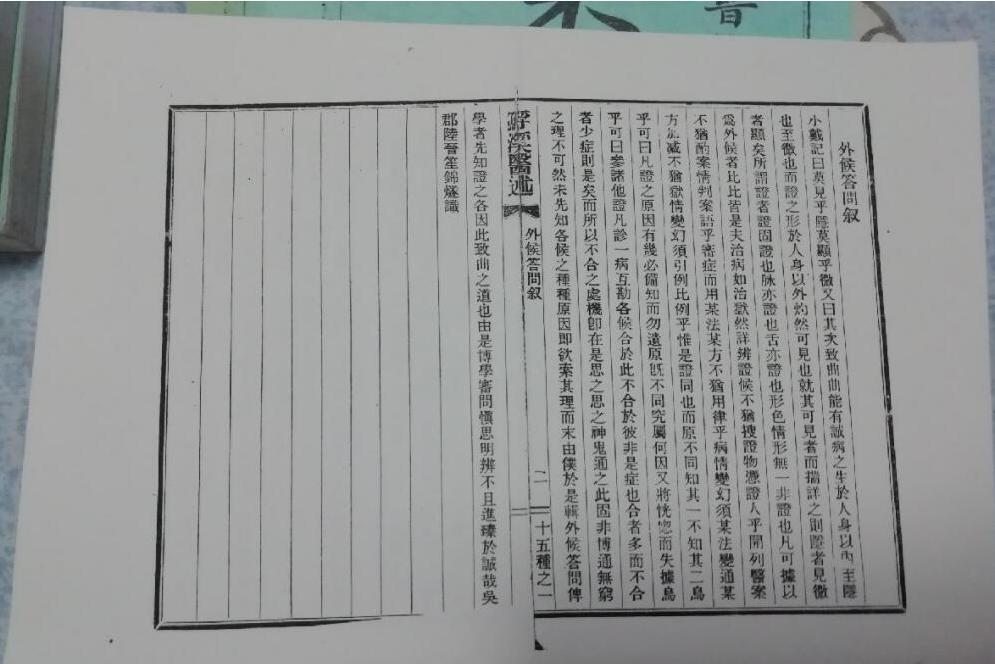 外候答問叙
小戴記曰莫見乎隱莫顯乎微又曰其次致曲曲能有誠病之生於人身以內至隱
也至微也而證之形於人身以外灼然可見也就其可見者而揣詳之則隱者見微
者顯矣所謂證者證固證也脉亦證也舌亦證也形色情形無一非證也凡可據以
爲外候者比比皆是夫治病如治獄然詳辨證候不猶搜證物憑證人乎開列醫案
不猶酌案情判案語乎審症而用某法某方不猶用律乎病情變幻須某法變通某
方加減不猶獄情變幻須引例比例乎惟是證同也而原不同知其一不知其二烏
乎可曰凡證之原因有幾必備知而勿遺原旣不同究屬何因又將恍惚而失據烏
乎可曰參諸他證凡診一病互勘各候合於此不合於彼非是症也合者多而不合
者少症則是矣而所以不合之處機卽在是思之思之神鬼通之此固非博通無窮
之理不可然未先知各候之種種原因即欲索其理而末由僕於是輯外候答問俾
醫述
外候答問叙
二
十五種之一
學者先知證之各因此致曲之道也由是博學審問愼思明辨不且進臻於誠哉吳
郡陸晉笙錦燧識
晋